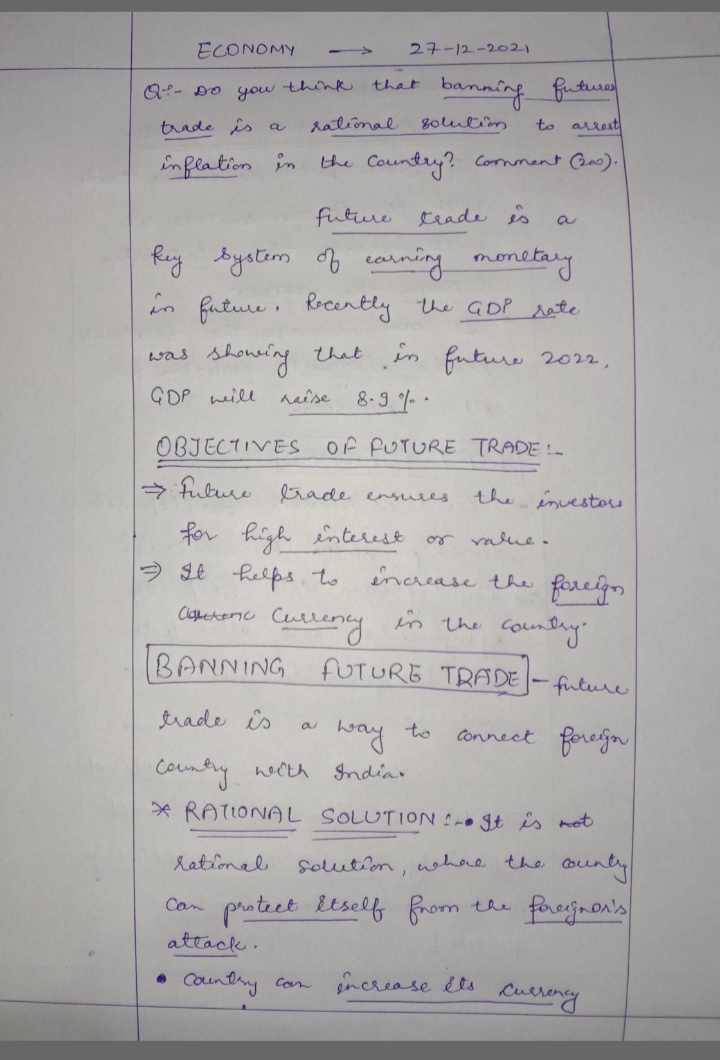 ECONOMY → 27-12-2021
Q:- Do you think that banning futures
trade is a rational solution to arrest
inflation in the Country? Comment (200).
Future trade is a
key system of earning monetary
in future. Recently the GDP rate
was showing that in future 2022,
GDP will raise 8.9%.
OBJECTIVES OF FUTURE TRADE:-
⇒ Future trade ensures the investors
for high interest or value.
⇒ It helps to increase the foreign
Currency in the country.
BANNING FUTURE TRADE - future
trade is a way to connect foreign
Country with India.
* RATIONAL SOLUTION:- • It is not
rational solution, where the country
can protect itself from the foreignor's
attack.
• Country can increase its currency